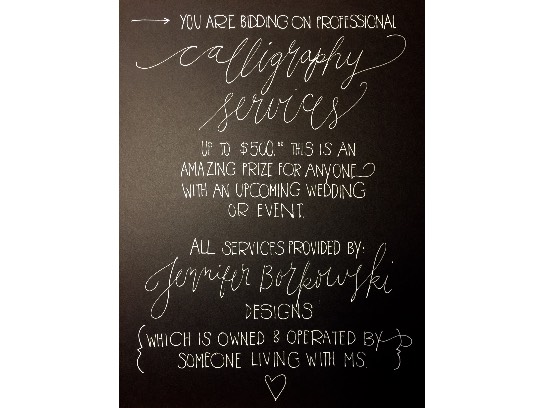 YOU ARE BIDDING ON PROFESSIONAL
calligraphy
services
UP TO $500.00 THIS IS AN
AMAZING PRIZE FOR ANYONE
WITH AN UPCOMING WEDDING
OR EVENT.
ALL SERVICES PROVIDED BY:
Jennifer Borkowski
DESIGNS
{WHICH IS OWNED & OPERATED BY
SOMEONE LIVING WITH MS.}